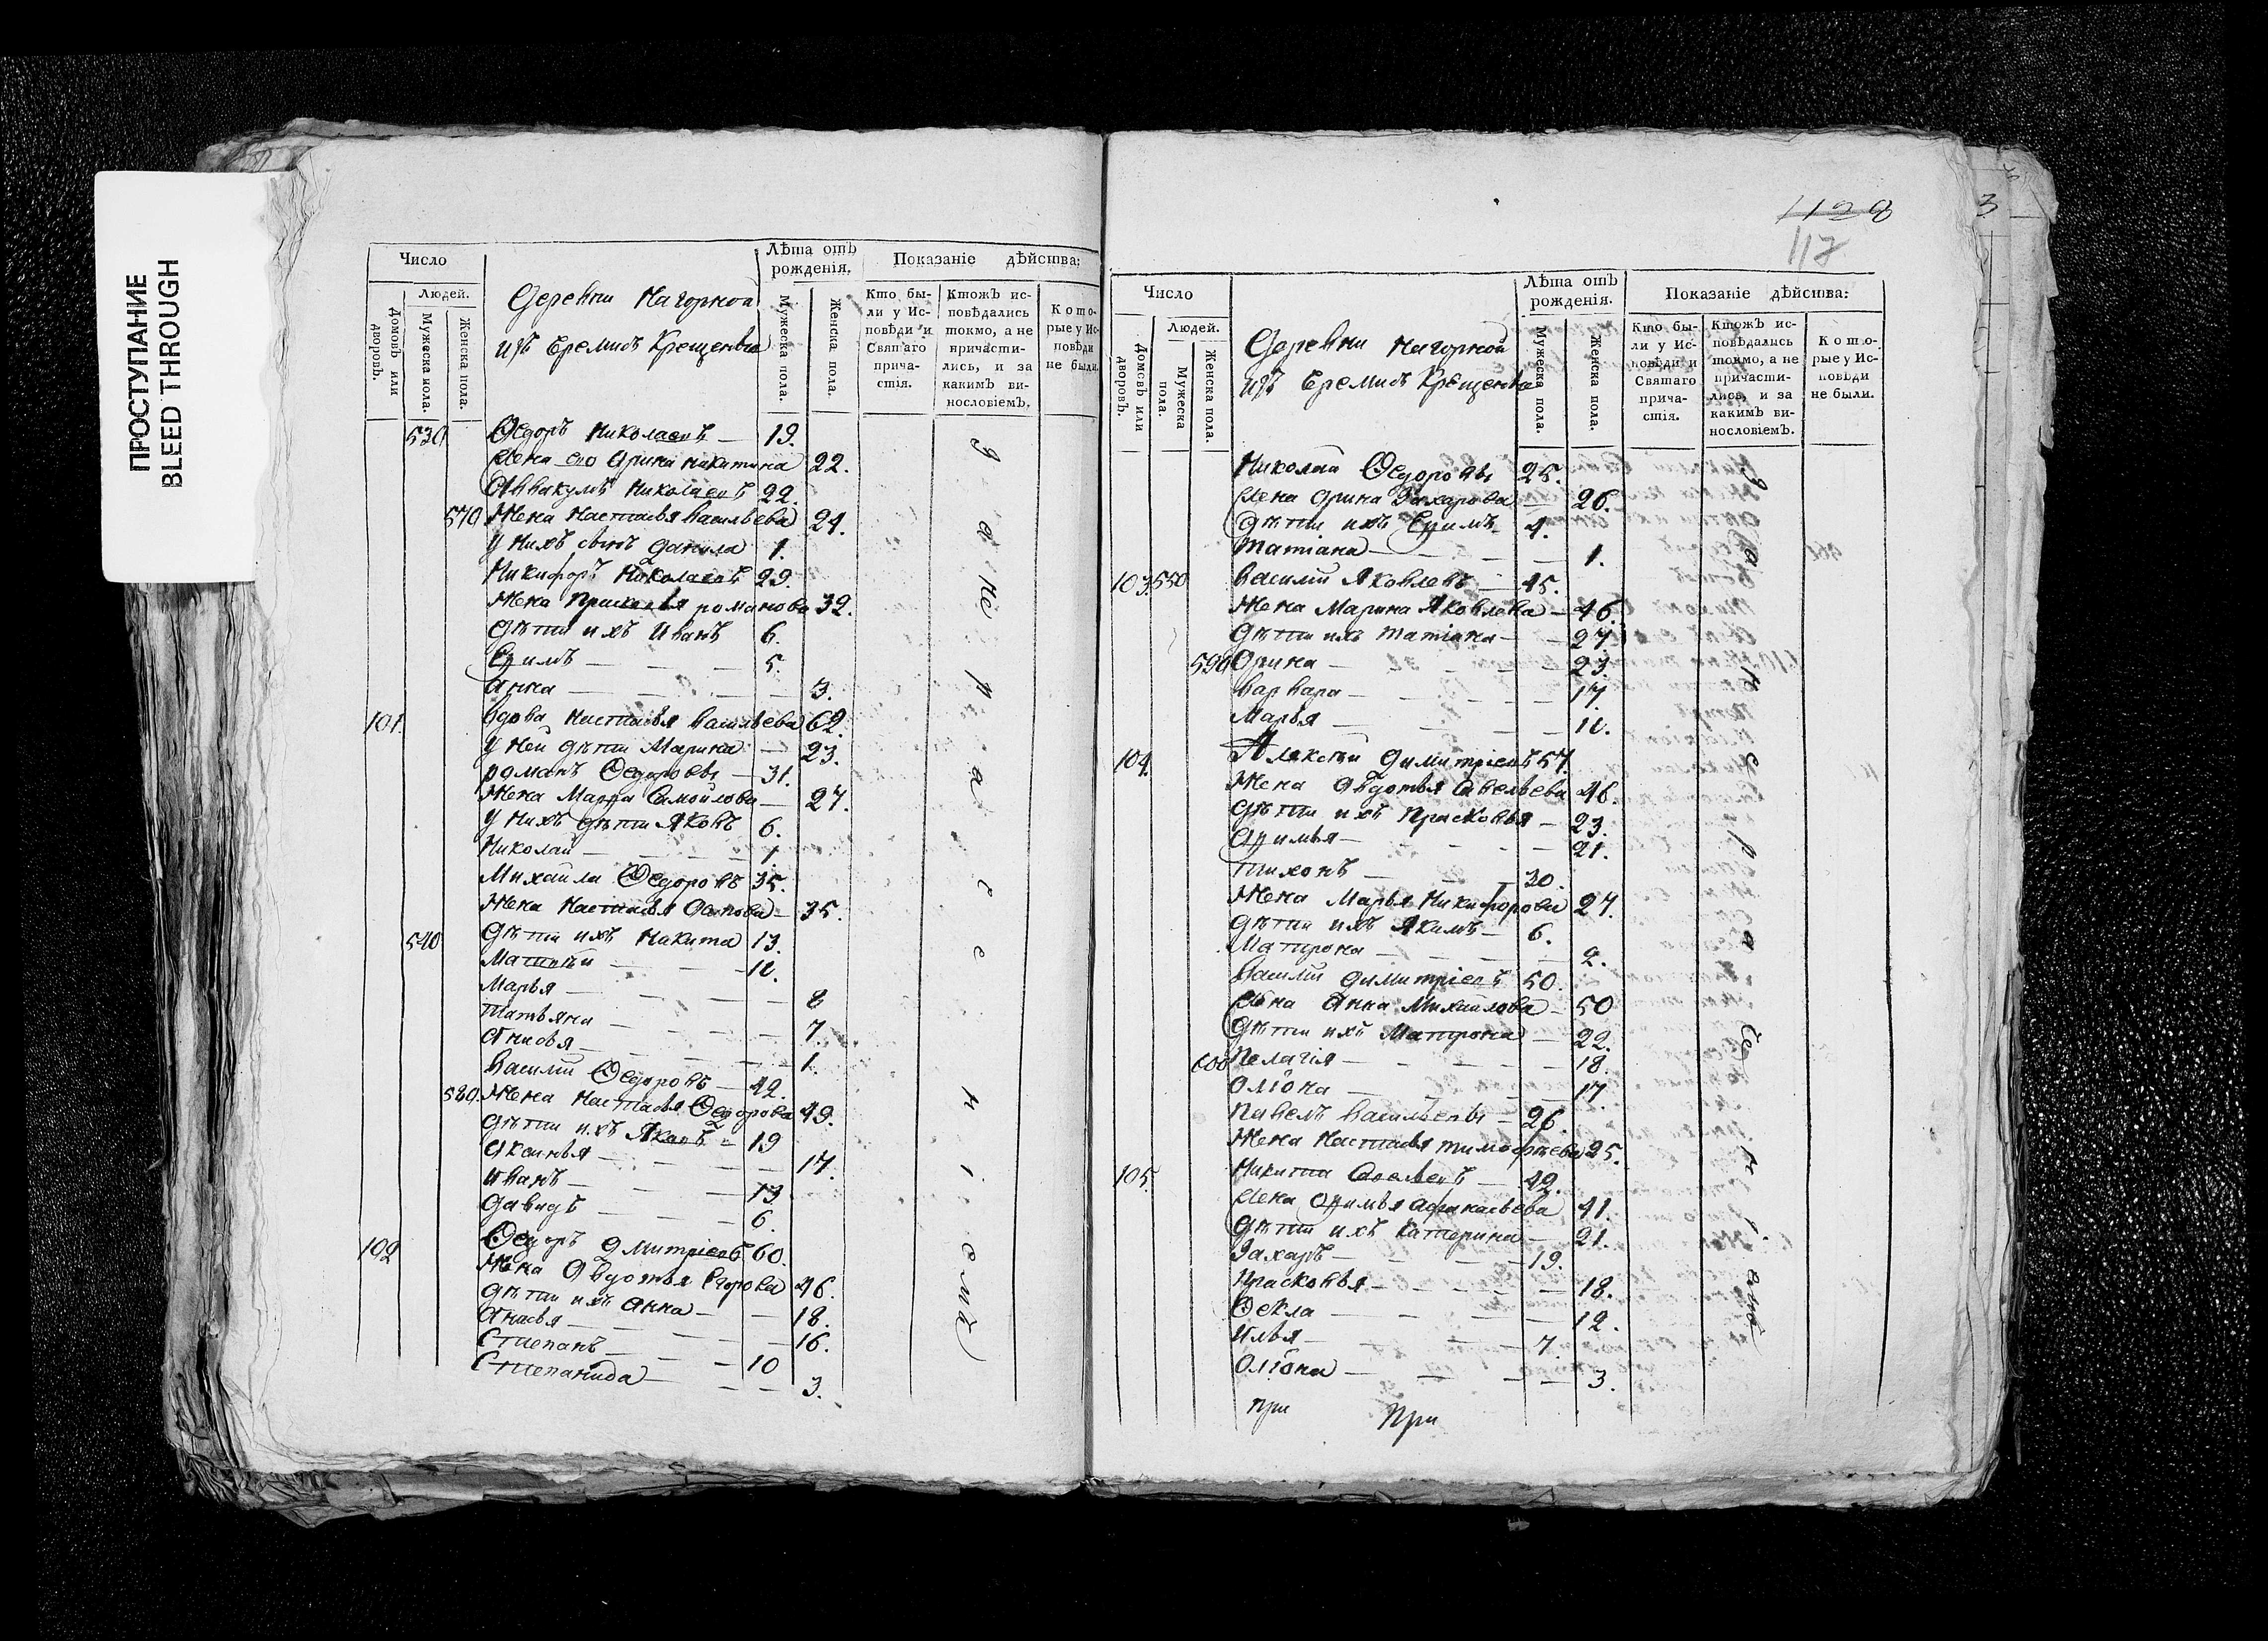 ПРОСТУПАНИЕ
BLEED THROUGH
Число
Людей.
Домовъ или дворовъ.
Мужеска пола.
Женска пола.
Деревни Нагорной
изъ Еремисъ Крещеныя
Лѣта отъ рожденія.
Мужеска пола.
Женска пола.
Показаніе дѣйства:
Кто бы-
ли у Ис-
повѣди и
Святаго
прича-
стія.
Ктожъ ис-
повѣдались
токмо, а не
причасти-
лись, и за
какимъ ви-
нословіемъ.
Кото-
рые у Ис-
повѣди
не были.
530 Ѳедоръ Николаевъ — 19.
Жена его Арина Никитина 22.
Аввакумъ Николаевъ 22.
570 Жена Настасья Васильева 24.
У нихъ сынъ Данила 1.
Никифоръ Николаевъ 29.
Жена Прасковья Романова 32.
Дѣти ихъ Иванъ 6.
Ефимъ — 5.
Анна — 3.
101 Вдова Настасья Васильева 62.
У ней дѣти Марина — 23.
Романъ Ѳедоровъ — 31.
Жена Марфа Самойлова — 27.
У нихъ дѣти Яковъ 6.
Николай — 1.
Михайла Ѳедоровъ 35.
Жена Настасья Осипова — 35.
540 Дѣти ихъ Никита 13.
Матвѣй — 11.
Марья — 8
Татьяна — 7.
Анисья — 1.
Василій Ѳедоровъ — 42.
580. Жена Настасья Ѳедорова 49.
Дѣти ихъ Яковъ — 19
Аксинья — 17.
Иванъ — 13
Давыдъ — 6.
102 Ѳедоръ Дмитріевъ 60.
Жена Авдотья Егорова 46.
Дѣти ихъ Анна — 18.
Анисья — 16.
Степанъ — 10
Степанида — 3.
За нерасченіемъ
1128
117
3
Число
Людей.
Домовъ или дворовъ.
Мужеска пола.
Женска пола.
Деревни Нагорной
изъ Еремисъ Крещеныя
Лѣта отъ рожденія.
Мужеска пола.
Женска пола.
Показаніе дѣйства:
Кто бы-
ли у Ис-
повѣди и
Святаго
прича-
стія.
Ктожъ ис-
повѣдались
токмо, а не
причасти-
лись, и за
какимъ ви-
нословіемъ.
Кото-
рые у Ис-
повѣди
не были.
Николай Ѳедоровъ 25.
Жена Арина Захарова — 26.
Дѣти ихъ Ефимъ — 4.
Татіана — 1.
103 550 Василій Яковлевъ — 45.
Жена Марина Яковлева — 46.
Дѣти ихъ Татіана — 27.
590 Орина — 23.
Варвара — 17.
Марья — 11.
104 Алексѣй Димитріевъ 57.
Жена Авдотья Савельева 46.
Дѣти ихъ Прасковья — 23.
Афимья — 21.
Тихонъ — 30.
Жена Марья Никифорова 27.
Дѣти ихъ Якимъ — 6.
Матрона — 2.
Василій Димитріевъ 50.
Жена Анна Михайлова — 50
Дѣти ихъ Матрона — 22.
600 Пелагія — 18.
Оліона — 17.
Павелъ Васильевъ — 26.
Жена Настасья Тимофѣева 25.
105. Никита — 42.
Жена Офимья Афанасьева 41.
Дѣти ихъ Катерина — 21.
Захаръ — 19.
Прасковья — 18.
Ѳекла — 12.
Илья — 7.
Оліона — 3.
при При